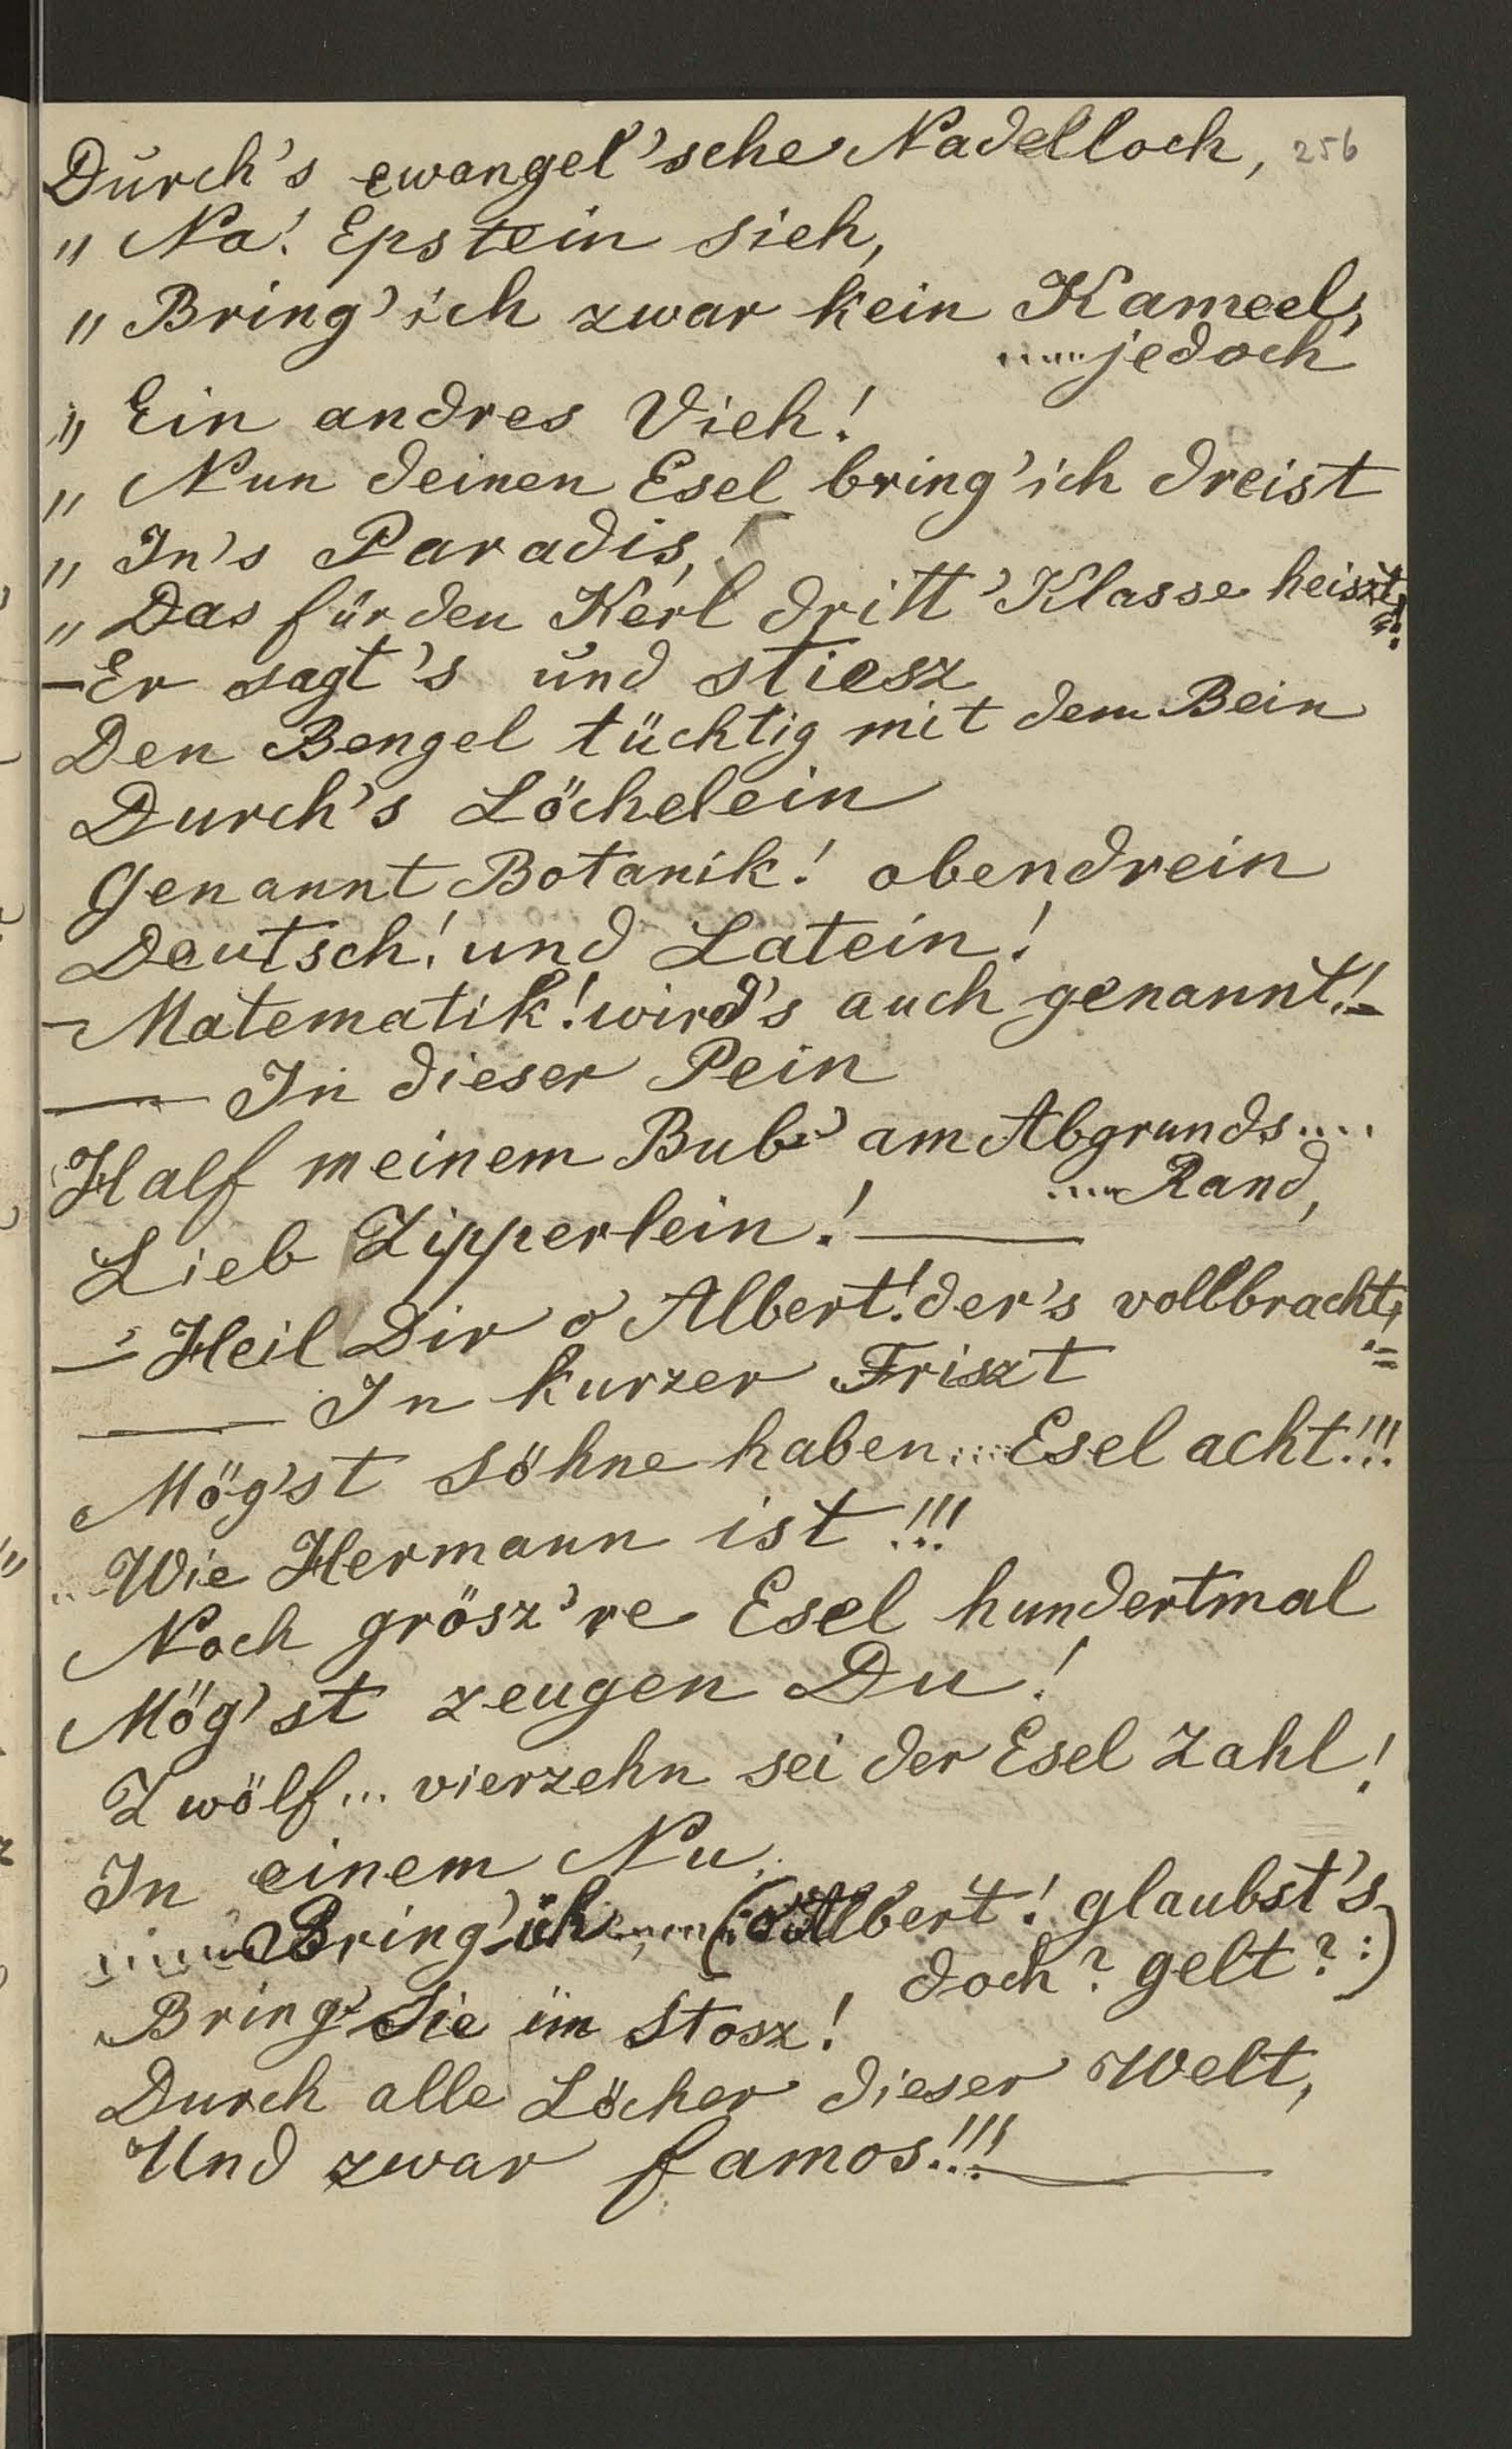 Durch's ewangel'sche Nadelloch, 256
„ Na! Epstein sieh,
„ Bring' ich zwar kein Kameel,
.....jedoch
„ Ein andres Vieh!
„ Nun deinen Esel bring' ich dreist
„ In's Paradis,!
„ Das für den Kerl dritt' Klasse heiszt!
— Er sagt's und stiesz
Den Bengel tüchtig mit dem Bein
Durch's Löchelein
Genannt Botanik! obendrein
Deutsch! und Latein!
— Matematik! wird's auch genannt!—
— In dieser Pein
Half meinem Bub' am Abgrunds....
....Rand,
Lieb Zipperlein!—
— Heil Dir o Albert! der's vollbracht,
— In kurzer Friszt
Mög'st söhne haben.... Esel acht!!!
.. Wie Hermann ist!!!
Noch grösz're Esel hundertmal
Mög'st zeugen Du!
Zwölf... vierzehn sei der Esel Zahl!
In einem Nu..
.....Bring' ich.....(: o Albert! glaubst's
doch? gelt? :)
Bring' Sie im Stosz!
Durch alle Löcher dieser Welt,
Und zwar famos!!!—